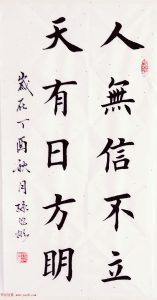 人無信不立
天有日方明
歲在丁酉秋月